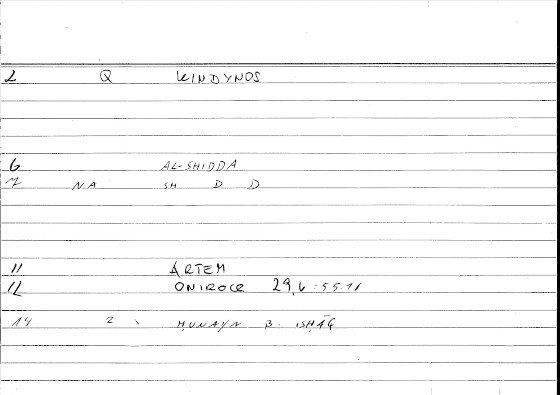 2 Q KINDYNOS
6 AL-SHIDDA
7 NA SH D D
11 ARTEM
12 ONIROCR 29,6:55.18
14 2 ḤUNAYN B. ISḤĀQ